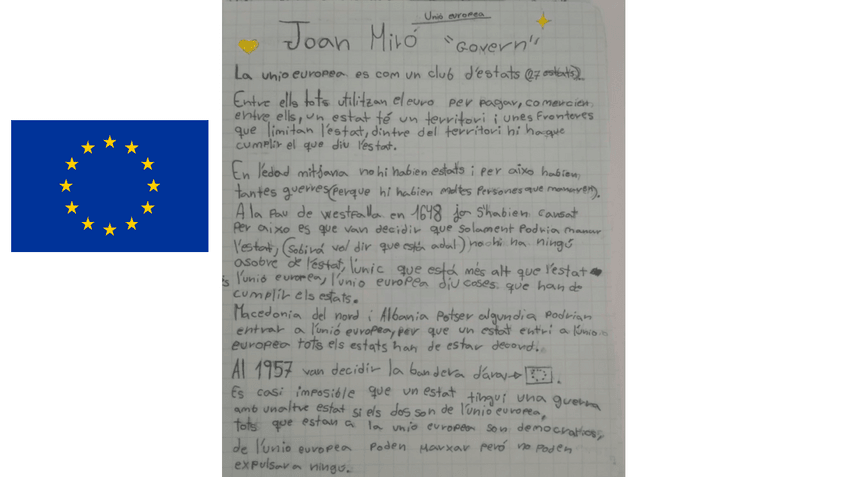 Unió europea
Joan Miró "Govern"
La unio europea es com un club d'estats (27 estats).
Entre ells tots utilitzan el euro per pagar, comercien
entre ells, un estat té un territori i unes Fronteres
que limitan l'estat, dintre del territori hi ha que
cumplir el que diu l'estat.
En l'edad mitjana no hi habien estats i per aixo habien
tantes guerres (perque hi habien moltes Persones que manaven).
A la Pau de westfalla en 1648 ja s'habien cansat
Per aixo es que van decidir que solament Podria manar
l'estat, (sobirá vol dir que está adal) no hi ha ningú
asobre de l'estat, l'únic que está més alt que l'estat
és l'unió europea, l'unio europea diu coses que han de
cumplir els estats.
Macedonia del nord i Albania Potser algundia podrian
entrar a l'unió europea, per que un estat entri a l'unio
europea tots els estats han de estar decord.
Al 1957 van decidir la bandera d'ara→ .
Es casi imposible que un estat tingui una guerra
amb unaltre estat si els dos son de l'unio europea,
tots que estan a la unio europea son democratics,
de l'unio europea Poden Marxar però no Poden
expulsar a ningú.